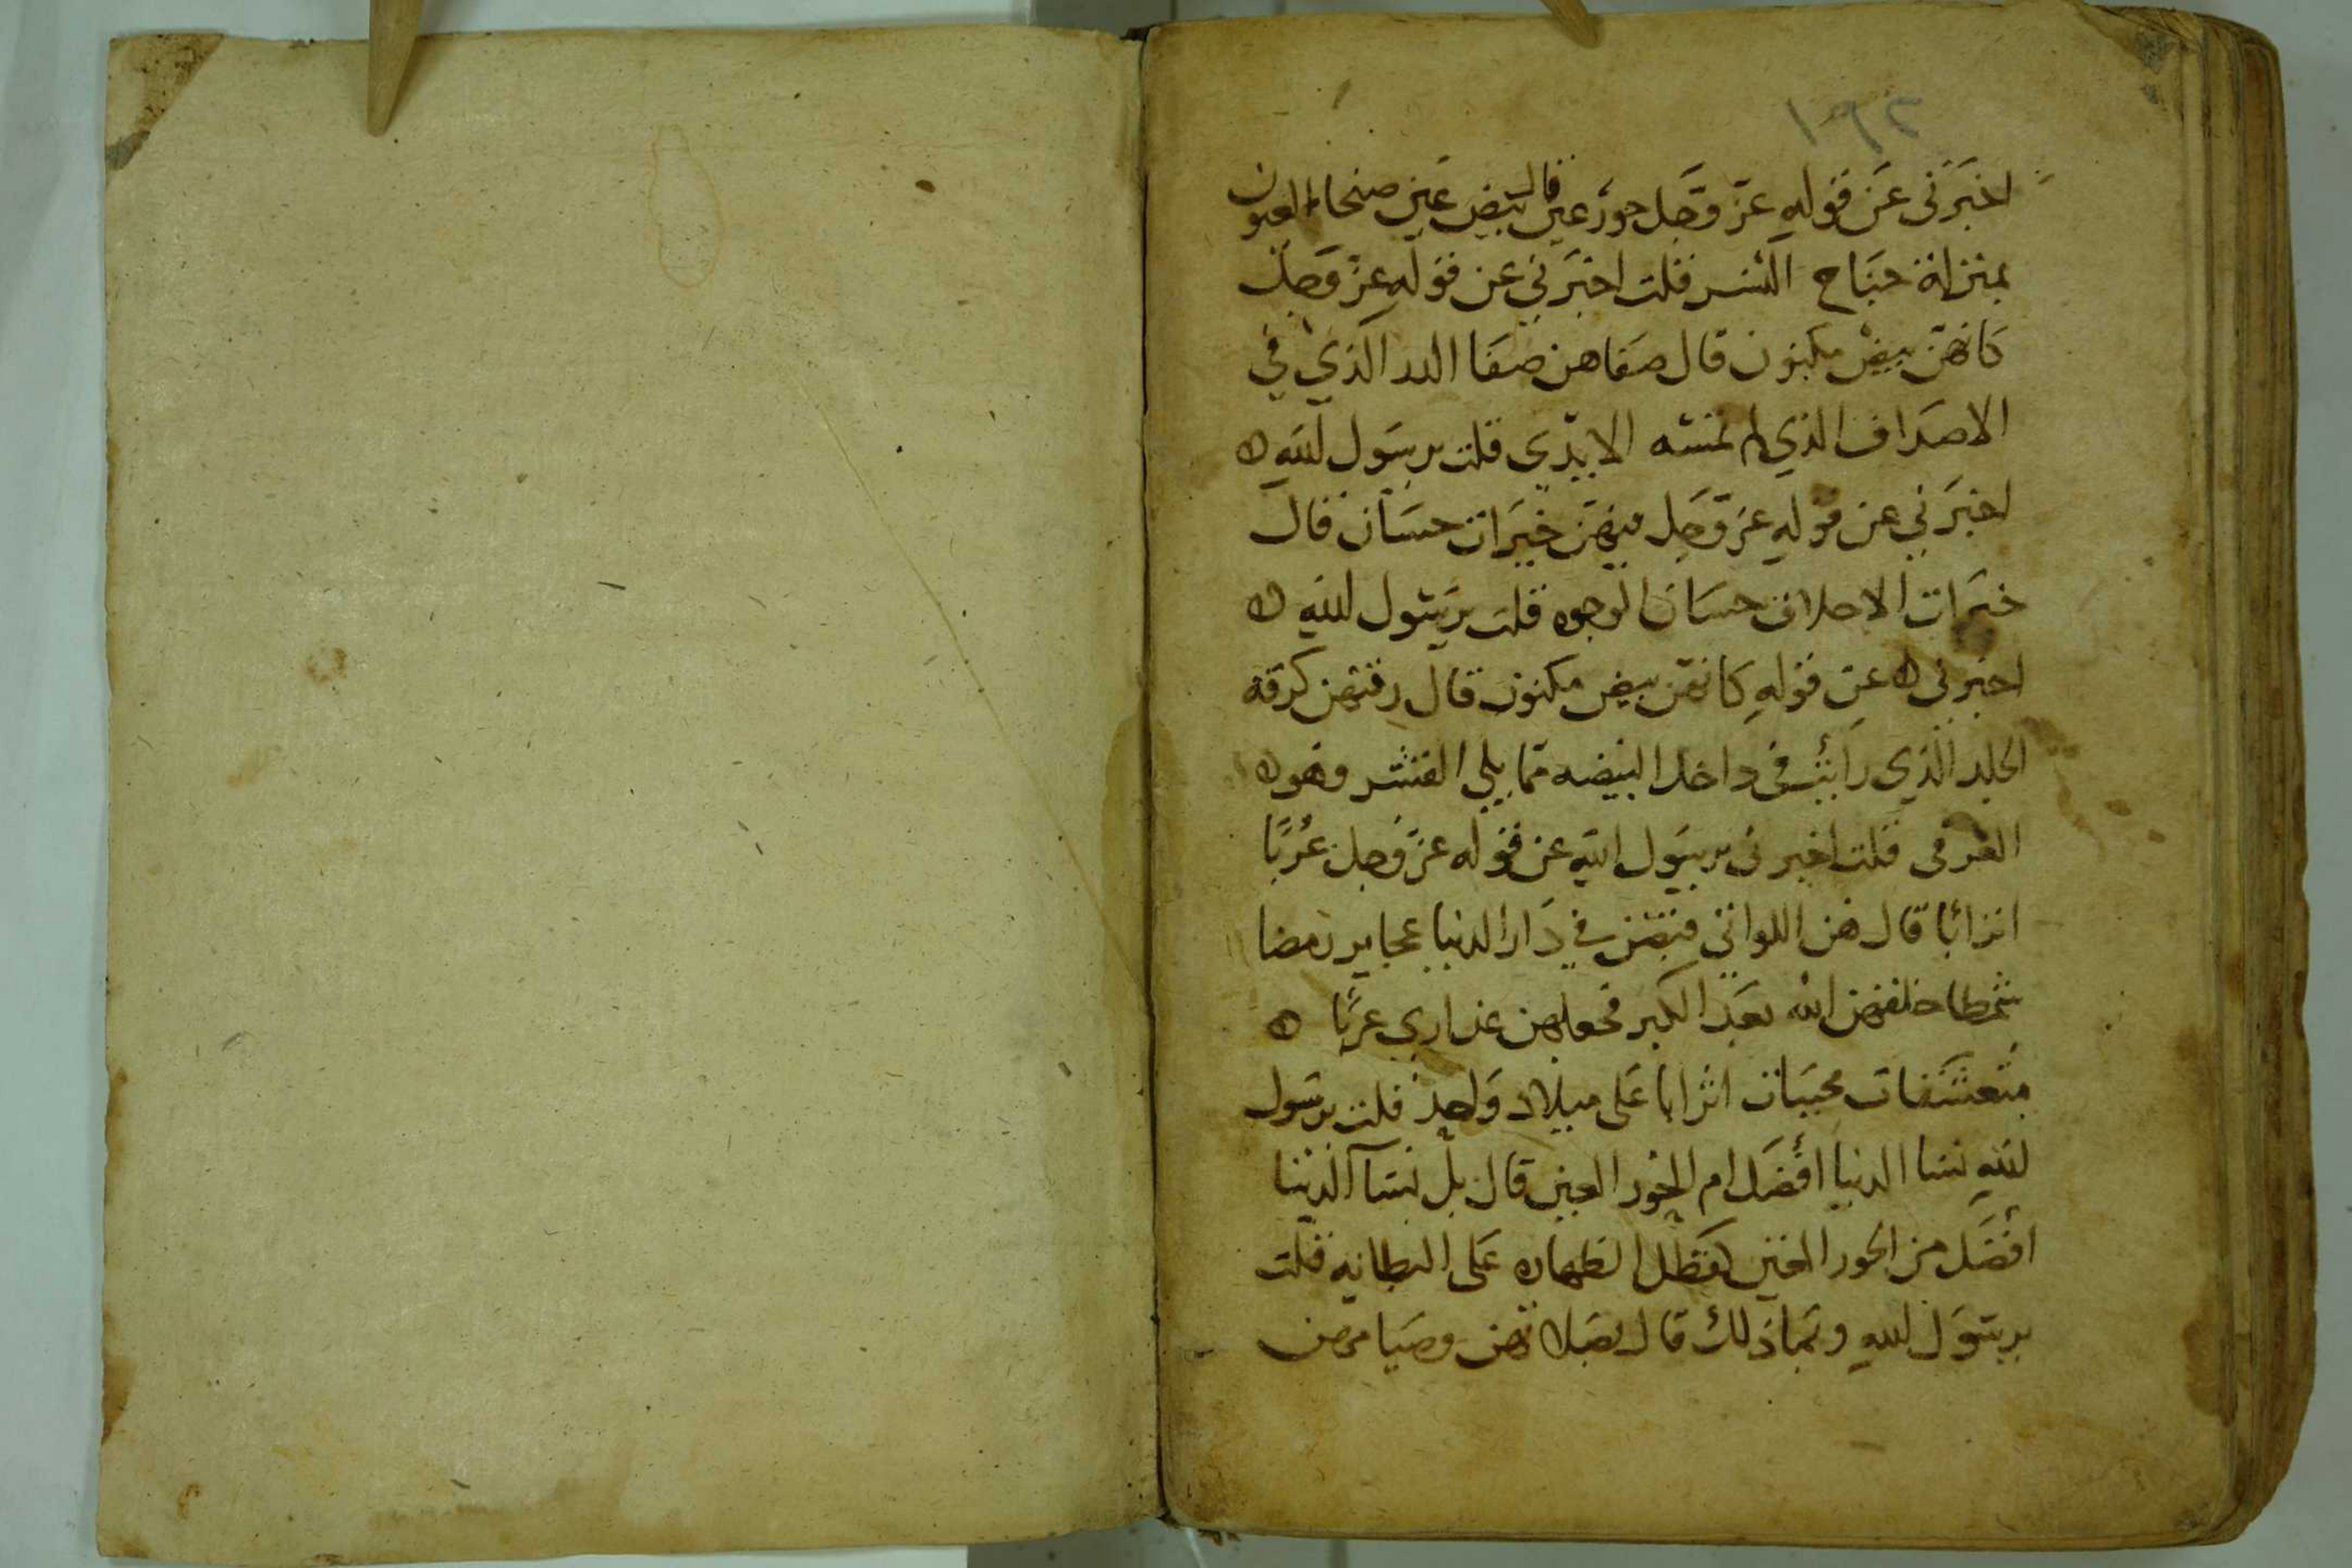 ١٩٢
اخبَرَني عَن قولهِ عزّ وَجَل حورٌ عين قال بيض عين ضخام العيون
بمنزلة جنَاح النسر قلت اخبَرَني عن قولهِ عزّ وَجل
كانهنّ بيضٌ مكنون قال صَفاهن صَفَا الدر الذي في
الاصدَاف الذي لم تمسّه الايدّي قلت يرسَول الله
اخبَرَني عن قولهِ عز وَجَل فيهنّ خيَرات حسَان قال
خيَرات الاخلاق حسَان الوجوه قلت يرسَول اللهِ
اخبرني عن قولهِ كانهن بيض مكنون قال رقتهن كرقة
الجلد الذي رأيت في داخل البيضه ممّا يلي القشر وهو
الغرقى قلت اخبرني يرسَول اللهِ عن قوله عزّ وجل عُرُبًا
اترابًا قال هن اللواتي قبضن في دَار الدنيا عجايز رمصا
شمطا خلقهن الله بعَد الكبر فجعلهن عذاري عربًا
متعشقات محببَات اترابا عَلى ميلاد وَاحد قلت يرسَول
اللهِ نسا الدنيا افضَل ام الحور العين قال بل نسَآ الدنيا
افضَل من الحور العين كفضل الظهاره عَلى البطانه قلت
يرسَول اللهِ وبَما ذلك قال بصَلاتهن وصيَامهن